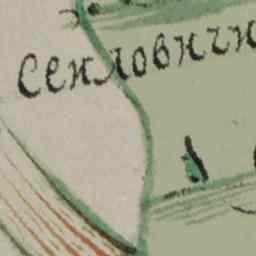 Сенловичи